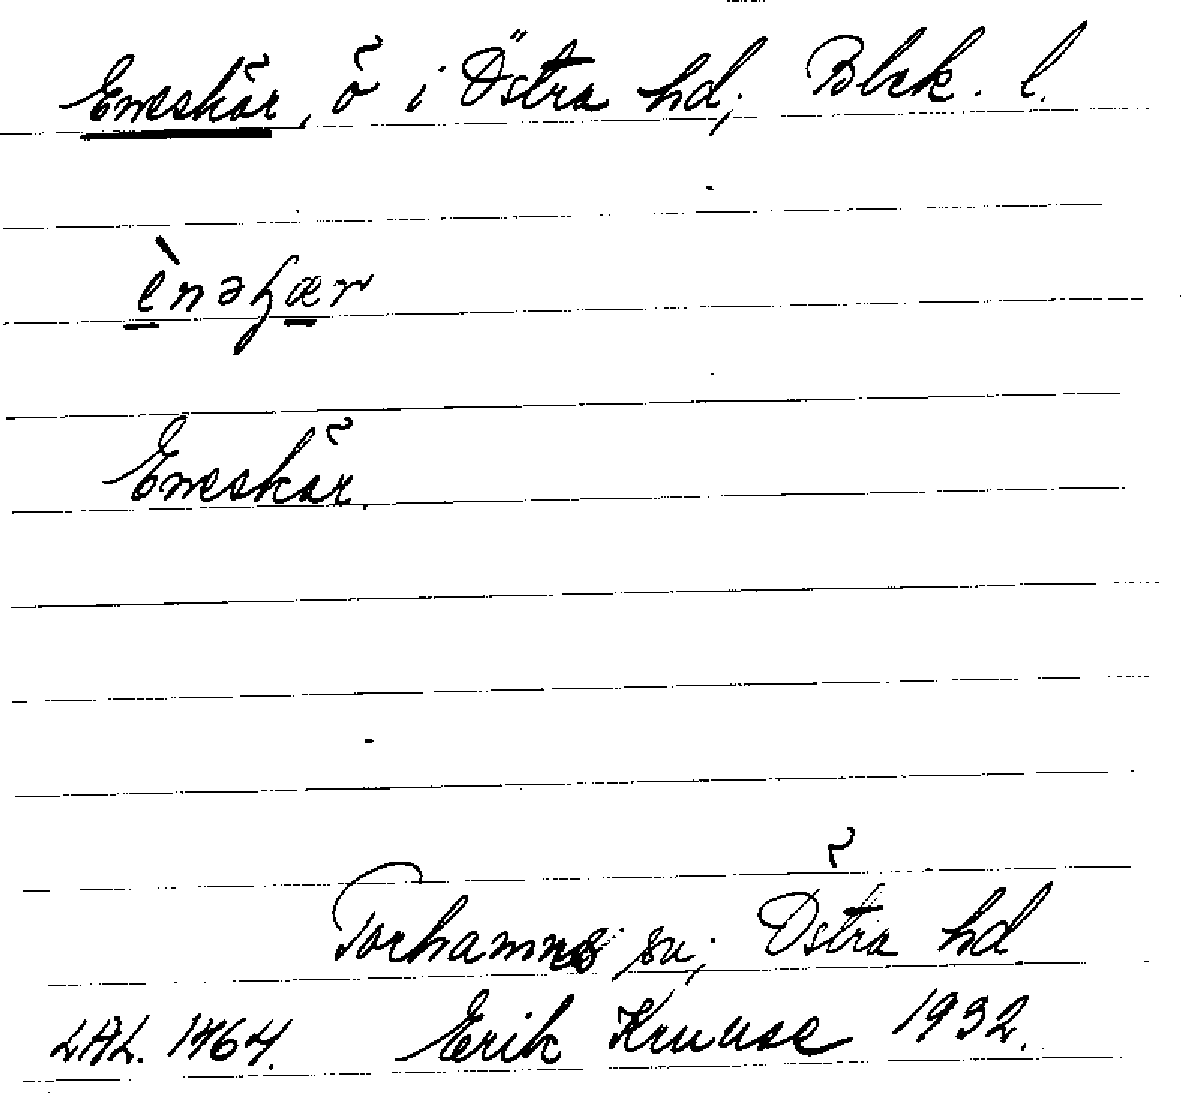 Eneskär, ö i Östra hd, Blek. l.
ènəʄær
Eneskär.
Torhamns sn, Östra hd
LAL. 1964. Erik Kruuse 1932.